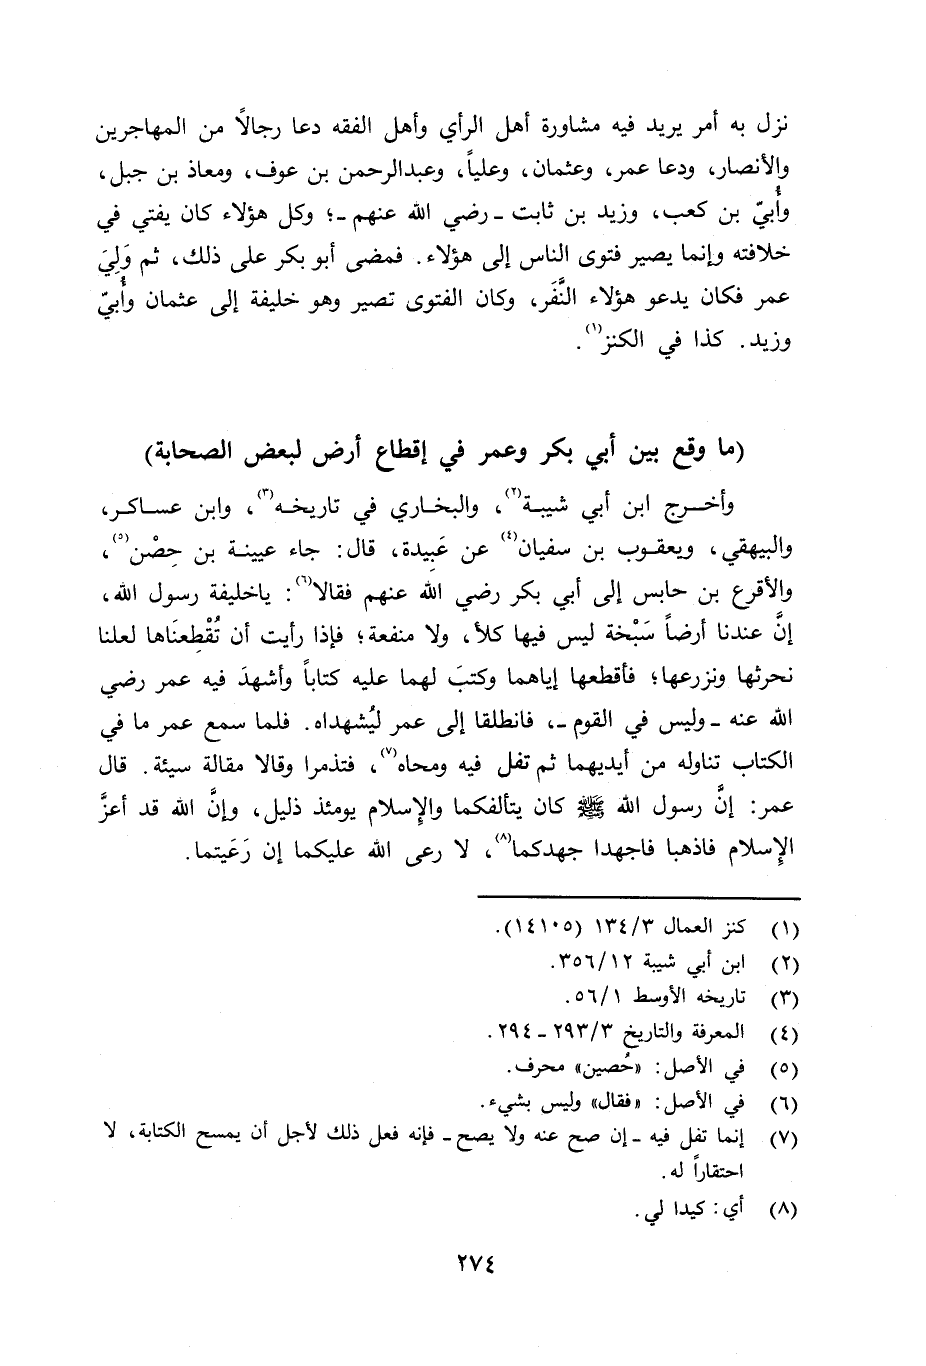 نزل به أمر يريد فيه مشاورة أهل الرأي وأهل الفقه دعا رجالاً من المهاجرين
والأنصار، ودعا عمر، وعثمان، وعلياً، وعبدالرحمن بن عوف، ومعاذ بن جبل،
وأُبيّ بن كعب، وزيد بن ثابت ـ رضي الله عنهم ـ؛ وكل هؤلاء كان يفتي في
خلافته وإنما يصير فتوى الناس إلى هؤلاء. فمضى أبو بكر على ذلك، ثم وَلِيَ
عمر فكان يدعو هؤلاء النَّفَر، وكان الفتوى تصير وهو خليفة إلى عثمان وأُبيّ
وزيد. كذا في الكنز(١).
(ما وقع بين أبي بكر وعمر في إقطاع أرض لبعض الصحابة)
وأخرج ابن أبي شيبة(٢)، والبخاري في تاريخه(٣)، وابن عساكر،
والبيهقي، ويعقوب بن سفيان(٤) عن عَبِيدة، قال: جاء عيينة بن حِصْن(٥)،
والأقرع بن حابس إلى أبي بكر رضي الله عنهم فقالا(٦): ياخليفة رسول الله،
إنَّ عندنا أرضاً سَبْخة ليس فيها كلأ، ولا منفعة؛ فإذا رأيت أن تُقْطِعنَاها لعلنا
نحرثها ونزرعها؛ فأقطعها إياهما وكتبَ لهما عليه كتاباً وأشهدَ فيه عمر رضي
الله عنه ـ وليس في القوم ـ، فانطلقا إلى عمر ليُشهداه. فلما سمع عمر ما في
الكتاب تناوله من أيديهما ثم تفل فيه ومحاه(٧)، فتذمرا وقالا مقالة سيئة. قال
عمر: إنَّ رسول الله ﷺ كان يتألفكما والإسلام يومئذ ذليل، وإنَّ الله قد أعزَّ
الإسلام فاذهبا فاجهدا جهدكما(٨)، لا رعى الله عليكما إن رَعَيتما.
(١) كنز العمال ٣/١٣٤ (١٤١٠٥).
(٢) ابن أبي شيبة ١٢/٣٥٦.
(٣) تاريخه الأوسط ١/٥٦.
(٤) المعرفة والتاريخ ٣/٢٩٣ ـ ٢٩٤.
(٥) في الأصل: «حُصين» محرف.
(٦) في الأصل: «فقال» وليس بشيء.
(٧) إنما تفل فيه ـ إن صح عنه ولا يصح ـ فإنه فعل ذلك لأجل أن يمسح الكتابة، لا
احتقاراً له.
(٨) أي: كيدا لي.
٢٧٤